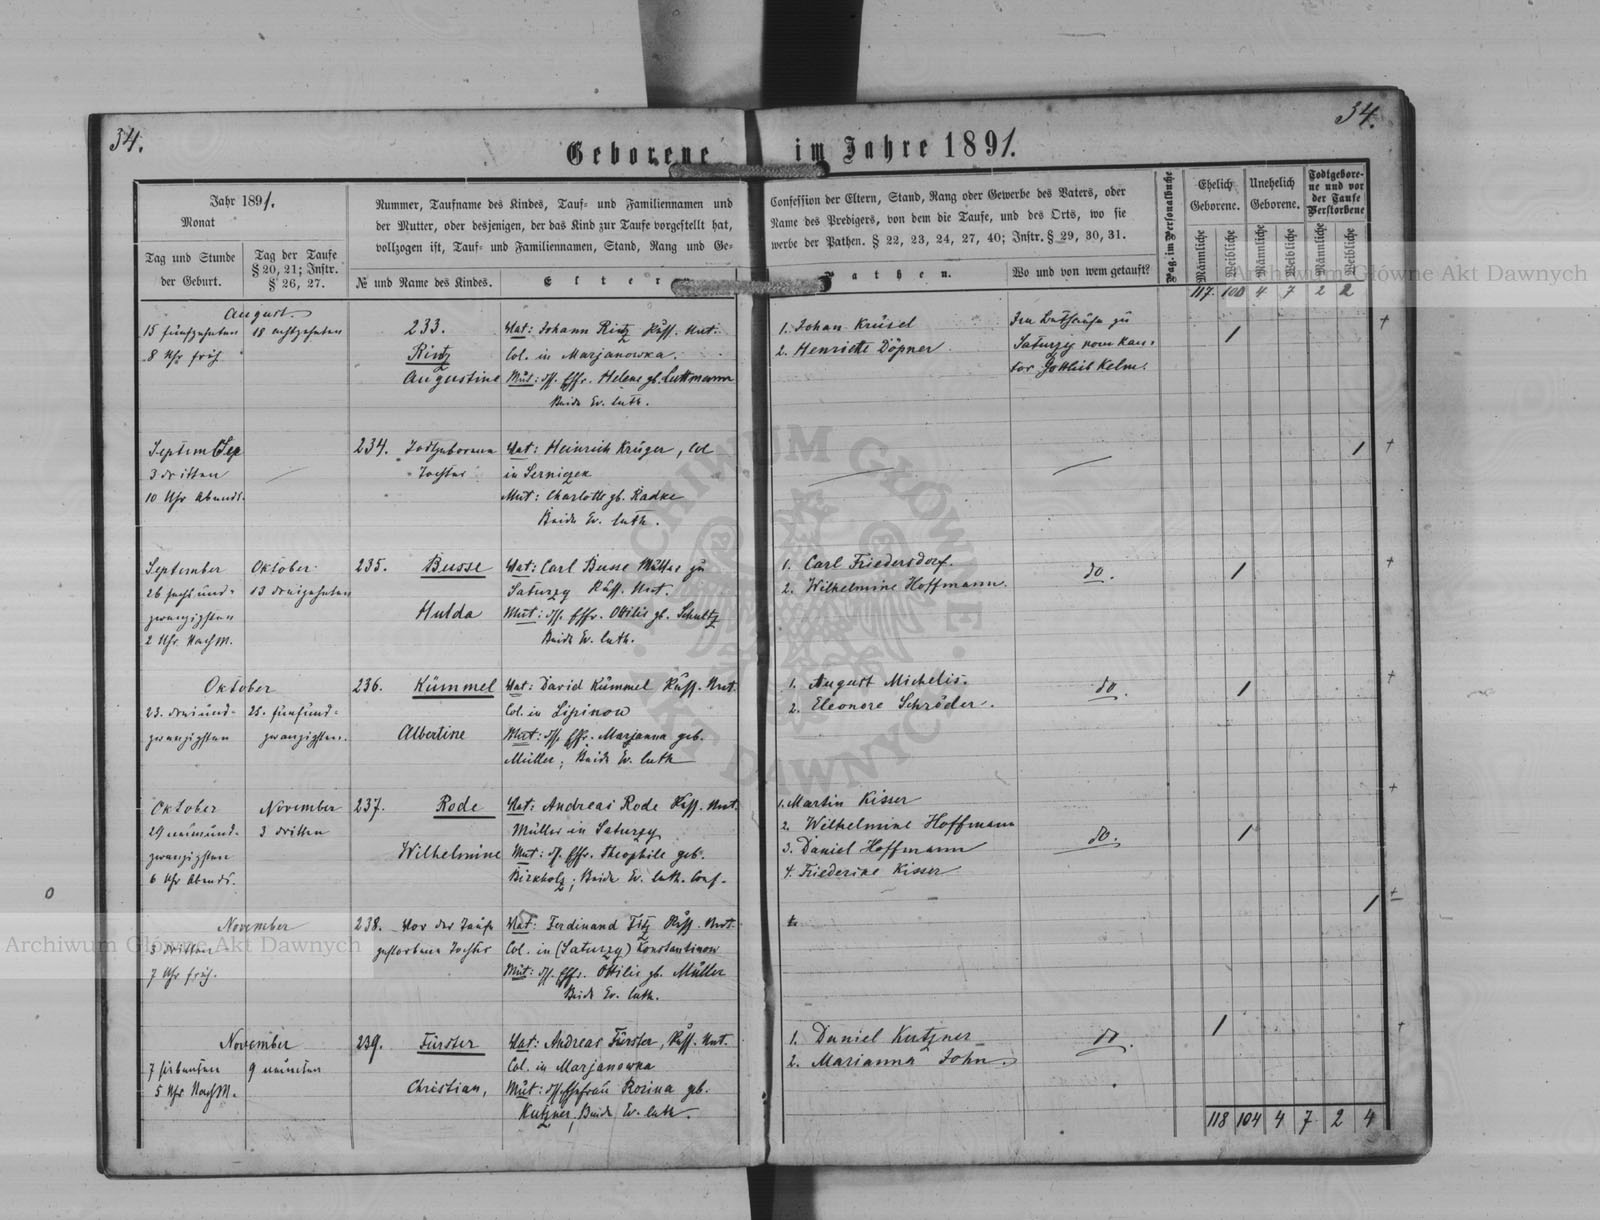 34.
34.
Geborene im Jahre 1891.
Jahr 1891.
Monat
Tag und Stunde
der Geburt.
Tag der Taufe
§ 20, 21; Instr.
§ 26, 27.
Nummer, Taufname des Kindes, Tauf- und Familiennamen und
der Mutter, oder desjenigen, der das Kind zur Taufe vorgestellt hat,
vollzogen ist, Tauf- und Familiennamen, Stand, Rang und Ge-
№ und Name des Kindes.
Elter
Confession der Eltern, Stand, Rang oder Gewerbe des Vaters, oder
Name des Predigers, von dem die Taufe, und des Orts, wo sie
werbe der Pathen. § 22, 23, 24, 27, 40; Instr. § 29, 30, 31.
Pathen.
Wo und von wem getauft?
Pag. im Personalbuche
Ehelich
Geborene.
Unehelich
Geborene.
Todtgebore-
ne und vor
der Taufe
Verstorbene
Männliche
Weibliche
Männliche
Weibliche
Männliche
Weibliche
117. 100 4 7 2 2
August.
15 fünfzehnten
8 Uhr früh.
18 achtzehnten
233.
Rintz
Augustine
Vat: Johann Rintz Russ. Unt.
Col. in Marjanowka.
Mut: dss. Ehfr. Helene gb. Luttmann
Beide Ev. luth.
1. Johan Krüsel
2. Henriette Döpner.
Im Bethause zu
Saturzy vom Kan-
tor Gottlieb Kelm.
1
3 dritten
10 Uhr Abends.
234. Todtgeborene
Tochter
Vat: Heinrich Krüger, Col
in Serniczek
Mut: Charlotte gb. Radke
Beide Ev. luth.
1
September
26 sechsund-
zwanzigsten
2 Uhr NachM.
Oktober
13 dreizehnten
235. Busse
Hulda
Vat: Carl Busse Müller zu
Saturzy Russ. Unt.
Mut: dss. Ehfr. Ottilie gb. Schultz
Beide Ev. luth.
1. Carl Friedersdorf.
2. Wilhelmine Hoffmann.
do.
1
Oktober
23. dreiund-
zwanzigsten
25. fünfund-
zwanzigsten.
236. Kümmel
Albertine
Vat: David Kümmel Russ. Unt.
Col. in Lipinow
Mut: dss. Ehfr. Marjanna geb.
Müller; Beide Ev. luth
1. August Michelis.
2. Eleonore Schröder.
do.
1
Oktober
29 neunund-
zwanzigsten
6 Uhr Abends.
November
3 dritten
237. Rode
Wilhelmine
Vat: Andreas Rode Russ. Unt.
Müller in Saturzy
Mut: dss. Ehfr. Theophile geb.
Birkholz; Beide Ev. luth. Conf.
1. Martin Kisser
2. Wilhelmine Hoffmann
3. Daniel Hoffmann
4. Friederike Kisser
do.
1
November
3 dritten
7 Uhr früh.
238. Vor der Taufe
gestorbene Tochter
Vat: Ferdinand Fitz Russ. Unt.
Col. in (Saturzy) Konstantinow
Mut: dss. Ehfr. Ottilie gb. Müller
Beide Ev. luth.
1
November
7 siebenten
5 Uhr NachM.
9 neunten
239. Fürster
Christian,
Vat: Andreas Fürster, Russ. Unt.
Col. in Marjanowka
Mut: dss. Ehefrau Rosina gb.
Kutzner; Beide Ev. luth.
1. Daniel Kutzner
2. Marianna John.
do.
1
118 104 4 7 2 4
Archiwum Główne Akt Dawnych
Archiwum Główne Akt Dawnych
ARCHIWUM GŁÓWNE
AKT DAWNYCH